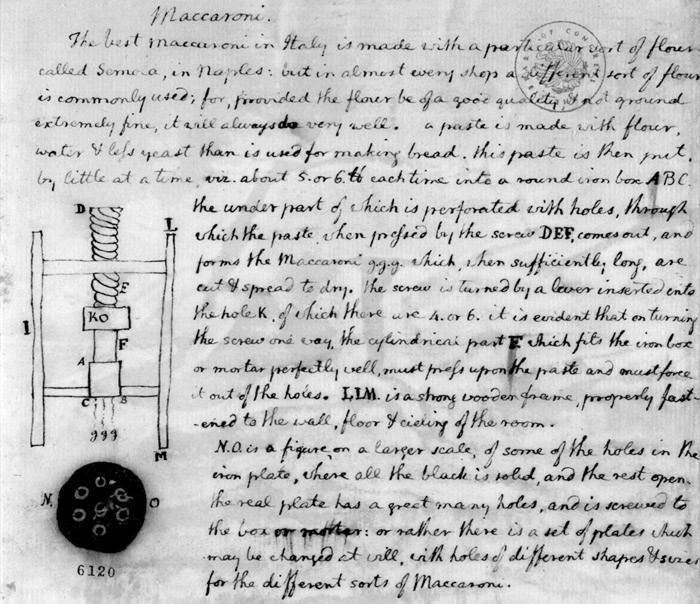 Maccaroni.
The best maccaroni in Italy is made with a particular sort of flour
called Semola, in Naples: but in almost every shop a different sort of flour
is commonly used; for, provided the flour be of a good quality, & not ground
extremely fine, it will always do very well. a paste is made with flour,
water & less yeast than is used for making bread. this paste is then put,
by little at a time, viz. about 5. or 6. ℔ each time into a round iron box ABC.
the under part of which is perforated with holes, through
which the paste, when pressed by the screw DEF, comes out, and
forms the Maccaroni g.g.g. which, when sufficiently long, are
cut & spread to dry. the screw is turned by a lever inserted into
the hole K, of which there are 4. or 6. it is evident that on turning
the screw one way, the cylindrical part F. which fits the iron box
or mortar perfectly well, must press upon the paste and must force
it out of the holes. LLM. is a strong wooden frame, properly fast-
-ened to the wall, floor & cieling of the room.
N.O. is a figure, on a larger scale, of some of the holes in the
iron plate, where all the black is solid, and the rest open.
the real plate has a great many holes, and is screwed to
the box or mortar: or rather there is a set of plates which
may be changed at will, with holes of different shapes & sizes
for the different sorts of Maccaroni.
D
L
I
E
KO
F
A
C
B
ggg
M
N.
O
6120